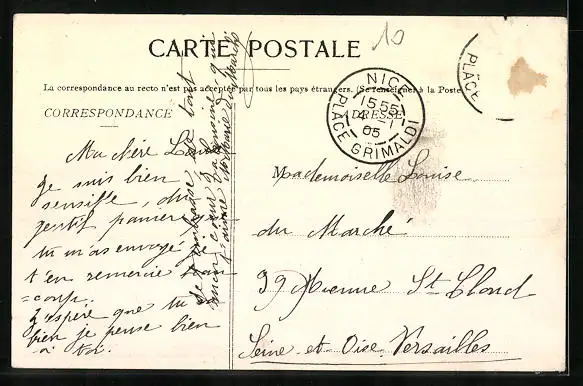 10
CARTE POSTALE
La correspondance au recto n'est pas acceptée par tous les pays étrangers. (Se renseigner à la Poste)
CORRESPONDANCE
ADRESSE
NICE
15 55
4 - 1
05
PLACE GRIMALDI
PLACE
Ma chère Louise
Je suis bien
sensible, du
gentil panier que
tu m'as envoyé je
t'en remercie beau
=coup.
J'espère que tu vas
bien je pense bien
à toi.
Je t'embrasse de tout
mon cœur
Mademoiselle Louise
du Marché
39 Avenue St Cloud
Seine-et-Oise. Versailles